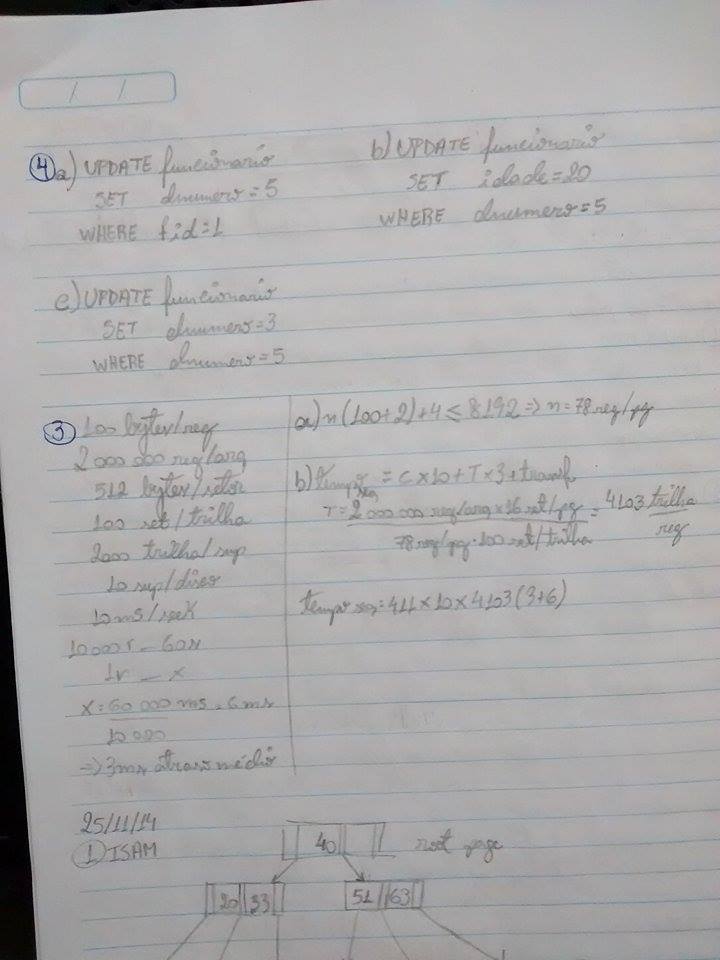 / /
④ a) UPDATE funcionario
SET dnumero=5
WHERE fid=1
b) UPDATE funcionario
SET idade=20
WHERE dnumero=5
c) UPDATE funcionario
SET dnumero=3
WHERE dnumero=5
③ 100 bytes/reg
2 000 000 reg/arq
512 bytes/setor
100 set/trilha
2000 trilha/sup
10 sup/disco
10 ms/seek
10000 r — 60s
1r — x
x = 60 000 ms = 6ms
10 000
=> 3ms atraso médio
a) n(100+2)+4 ≤ 8192 => n = 78 reg/pg
b) tempo seq = C x 10 + T x 3 + transf.
T = 2 000 000 reg/arq x 16 set/pg = 4103 trilha
78 reg/pg · 100 set/trilha reg
tempo seq = 411 x 10 x 4103 (3+6)
25/11/14
① ISAM
40 root page
20 33 51 63